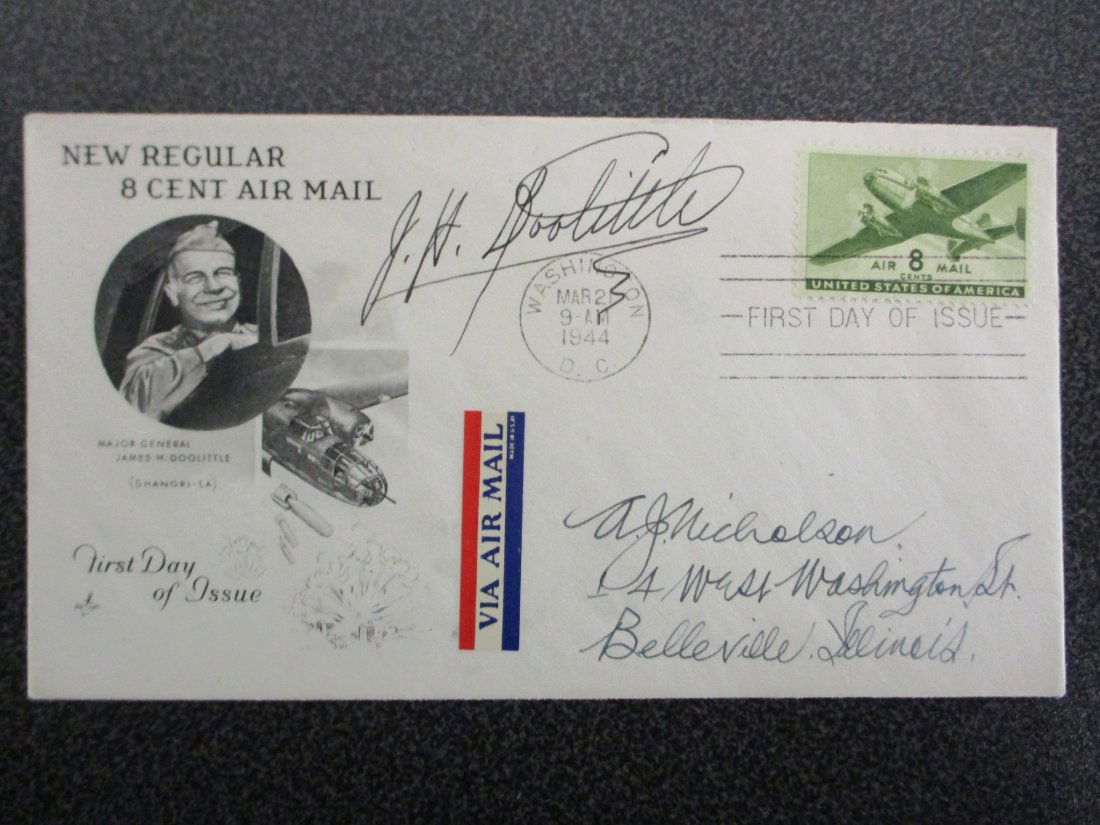 NEW REGULAR
8 CENT AIR MAIL
J. H. Doolittle
AIR 8 MAIL
CENTS
UNITED STATES OF AMERICA
WASHINGTON
MAR 21
9-AM
1944
D. C.
FIRST DAY OF ISSUE
MAJOR GENERAL
JAMES H. DOOLITTLE
(SHANGRI-LA)
VIA AIR MAIL
MADE IN U.S.A.
First Day
of Issue
A.J. Nicholson
14 West Washington St.
Belleville. Illinois.